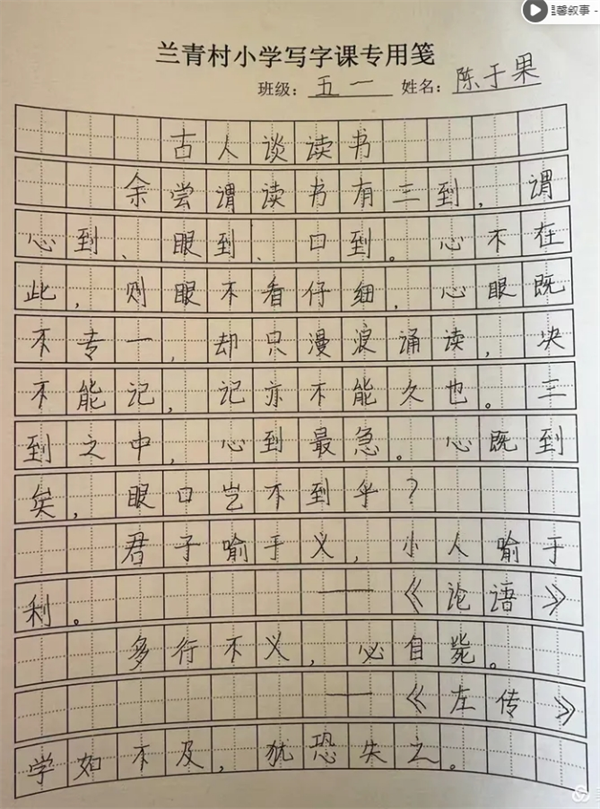 温馨叙事
兰青村小学写字课专用笺
班级：五一 姓名：陈于果
古人谈读书
余尝谓读书有三到，谓
心到、眼到、口到。心不在
此，则眼不看仔细，心眼既
不专一，却只漫浪诵读，决
不能记，记亦不能久也。三
到之中，心到最急。心既到
矣，眼口岂不到乎？
君子喻于义，小人喻于
利。——《论语》
多行不义，必自毙。
——《左传》
学如不及，犹恐失之。